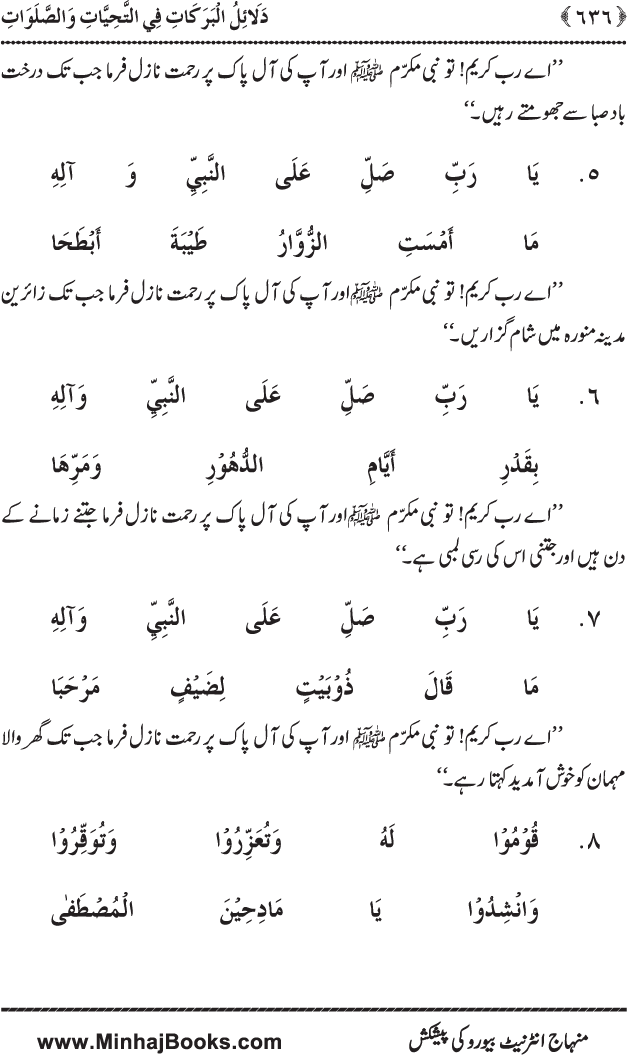 ﴿٦٣٦﴾ دَلَائِلُ الْبَرَكَاتِ فِي التَّحِيَّاتِ وَالصَّلَوَاتِ
’’اے رب کریم! تو نبی مکرّم ﷺ اور آپ کی آل پاک پر رحمت نازل فرما جب تک درخت
باد صبا سے جھومتے رہیں۔‘‘
٥. يَا رَبِّ صَلِّ عَلَى النَّبِيِّ وَ آلِهِ
مَا أَمْسَتِ الزُّوَّارُ طَيْبَةَ أَبْطَحَا
’’اے رب کریم! تو نبی مکرّم ﷺ اور آپ کی آل پاک پر رحمت نازل فرما جب تک زائرین
مدینہ منورہ میں شام گزاریں۔‘‘
٦. يَا رَبِّ صَلِّ عَلَى النَّبِيِّ وَآلِهِ
بِقَدْرِ أَيَّامِ الدُّهُوْرِ وَمَرِّهَا
’’اے رب کریم! تو نبی مکرّم ﷺ اور آپ کی آل پاک پر رحمت نازل فرما جتنے زمانے کے
دن ہیں اور جتنی اس کی رسی لمبی ہے۔‘‘
٧. يَا رَبِّ صَلِّ عَلَى النَّبِيِّ وَآلِهِ
مَا قَالَ ذُوْبَيْتٍ لِضَيْفٍ مَرْحَبَا
’’اے رب کریم! تو نبی مکرّم ﷺ اور آپ کی آل پاک پر رحمت نازل فرما جب تک گھر والا
مہمان کو خوش آمدید کہتا رہے۔‘‘
٨. قُوْمُوْا لَهُ وَتُعَزِّرُوْا وَتُوَقِّرُوْا
وَانْشِدُوْا يَا مَادِحِيْنَ الْمُصْطَفٰى
منہاج انٹرنیٹ بیورو کی پیشکش www.MinhajBooks.com